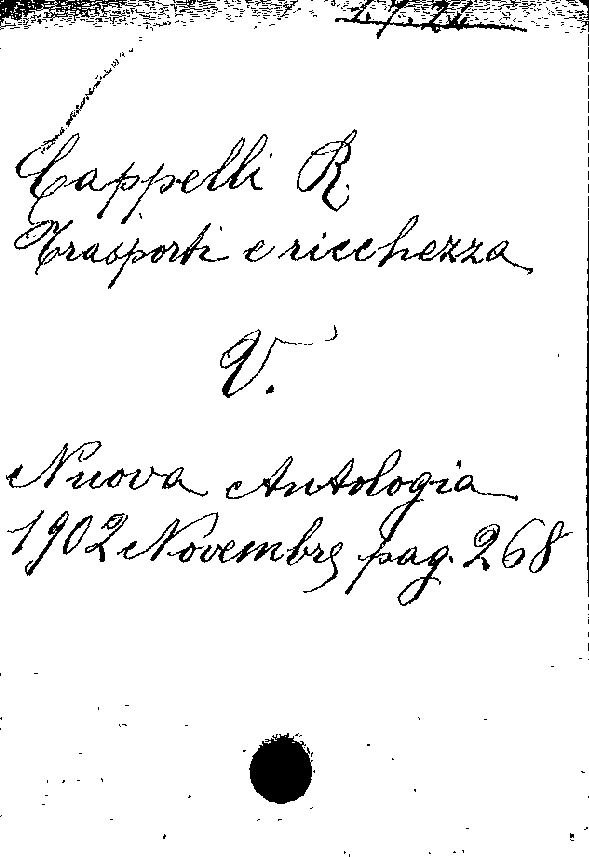 Cappelli R.
Trasporti e ricchezza
V.
Nuova Antologia
1902 Novembre pag. 268